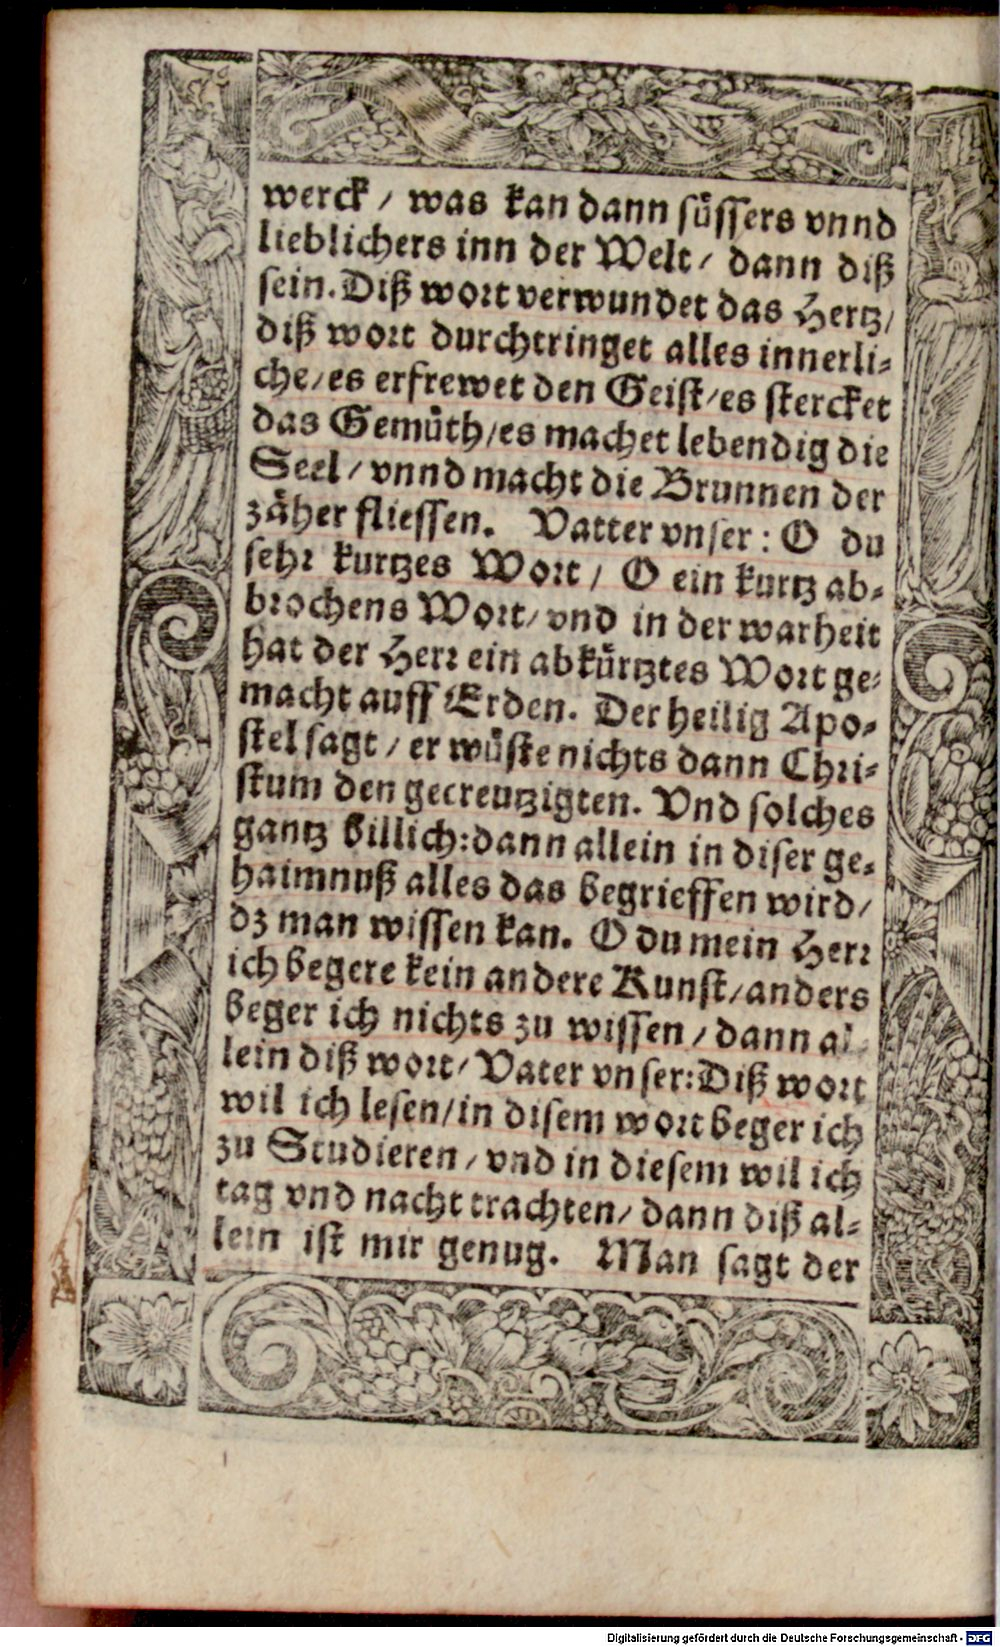 werck / was kan dann süssers vnnd
lieblichers inn der Welt / dann diß
sein. Diß wort verwundet das Hertz /
diß wort durchtringet alles innerli-
che / es erfrewet den Geist / es stercket
das Gemüth / es machet lebendig die
Seel / vnnd macht die Brunnen der
zäher fliessen. Vatter vnser : O du
sehr kurtzes Wort / O ein kurtz ab-
brochens Wort / vnd in der warheit
hat der Herr ein abkürtztes Wort ge-
macht auff Erden. Der heilig Apo-
stel sagt / er wüste nichts dann Chri-
stum den gecreutzigten. Vnd solches
gantz billich : dann allein in diser ge-
haimnuß alles das begrieffen wird /
dz man wissen kan. O du mein Herr
ich begere kein andere Kunst / anders
beger ich nichts zu wissen / dann al-
lein diß wort / Vater vnser : Diß wort
wil ich lesen / in disem wort beger ich
zu Studieren / vnd in diesem wil ich
tag vnd nacht trachten / dann diß al-
lein ist mir genug. Man sagt der
Digitalisierung gefördert durch die Deutsche Forschungsgemeinschaft - DFG